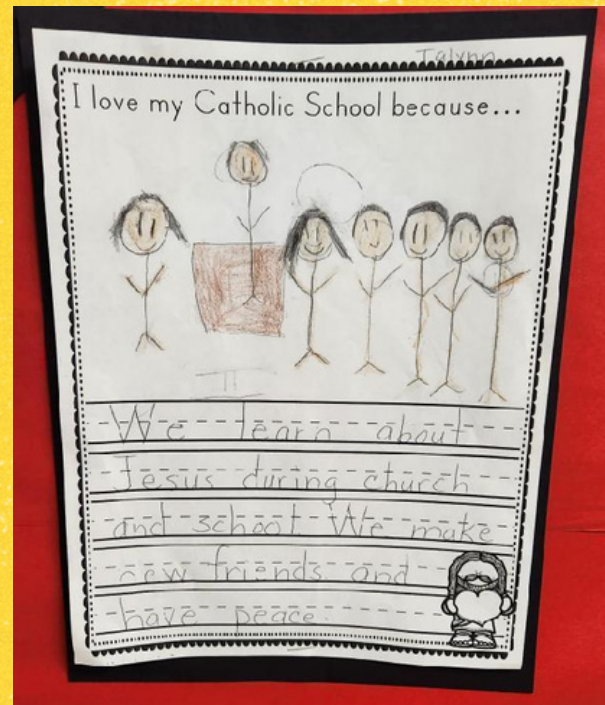 Talynn
I love my Catholic School because...
We learn about
Jesus during church
and school. We make
new friends and
have peace.